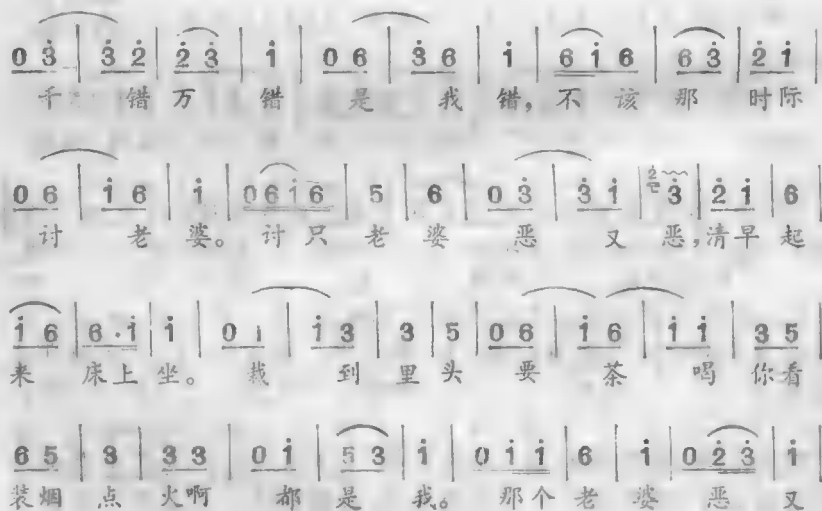 0 3̇ | 3̇ 2̇ | 2̇ 3̇ | 1̇ | 0 6 | 3̇ 6 | 1̇ | 6 1̇ 6 | 6 3̇ | 2̇ 1̇ |
千 错 万 错 是 我 错，不 该 那 时 际
0 6 | 1̇ 6 | 1̇ | 0 6 1̇ 6 | 5 | 6 | 0 3̇ | 3̇ 1̇ | 2̇ 3̇ | 2̇ 1̇ | 6 |
讨 老 婆。讨 只 老 婆 恶 又 恶，清 早 起
1̇ 6 | 6 · 1̇ | 1̇ | 0 1 | 1̇ 3 | 3 | 5 | 0 6 | 1̇ 6 | 1̇ 1̇ | 3 5 |
来 床 上 坐。 裁 到 里 头 要 茶 喝 你 看
6 5 | 3 | 3 3 | 0 1̇ | 5 3 | 1̇ | 0 1̇ 1̇ | 6 | 1̇ | 0 2̇ 3̇ | 1̇
装 烟 点 火 啊 都 是 我。 那 个 老 婆 恶 又